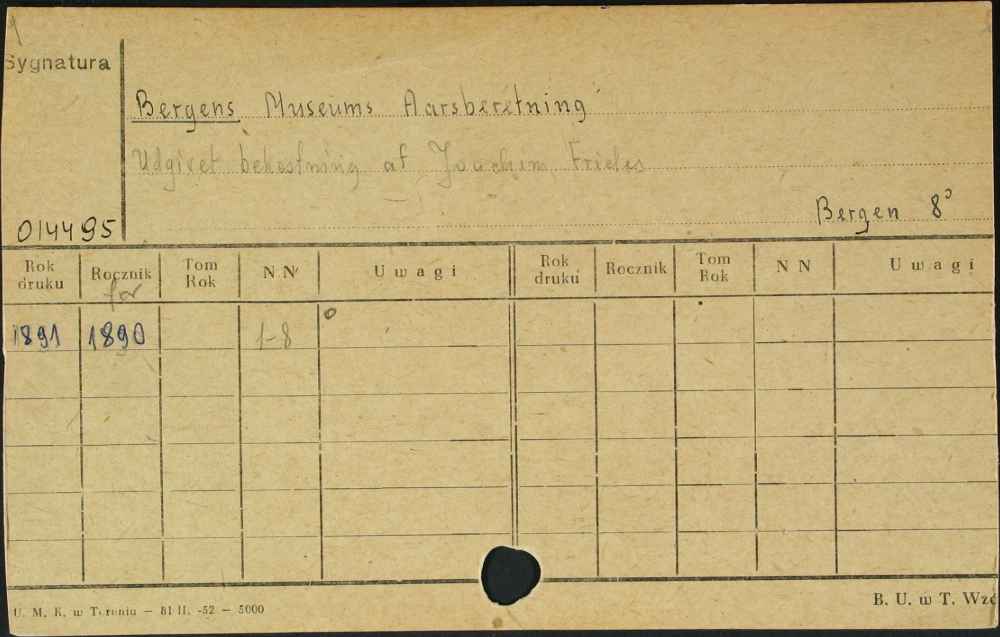 Sygnatura
Bergens Museums Aarsberetning
Udgivet bekostning af Joachim Frieles
Bergen 8°
014495
Rok druku Rocznik Tom Rok N N Uwagi Rok druku Rocznik Tom Rok N N Uwagi
for
1891 1890 1-8
U. M. K. w Toruniu — 81 II. -52 — 5000
B. U. w T. Wzó